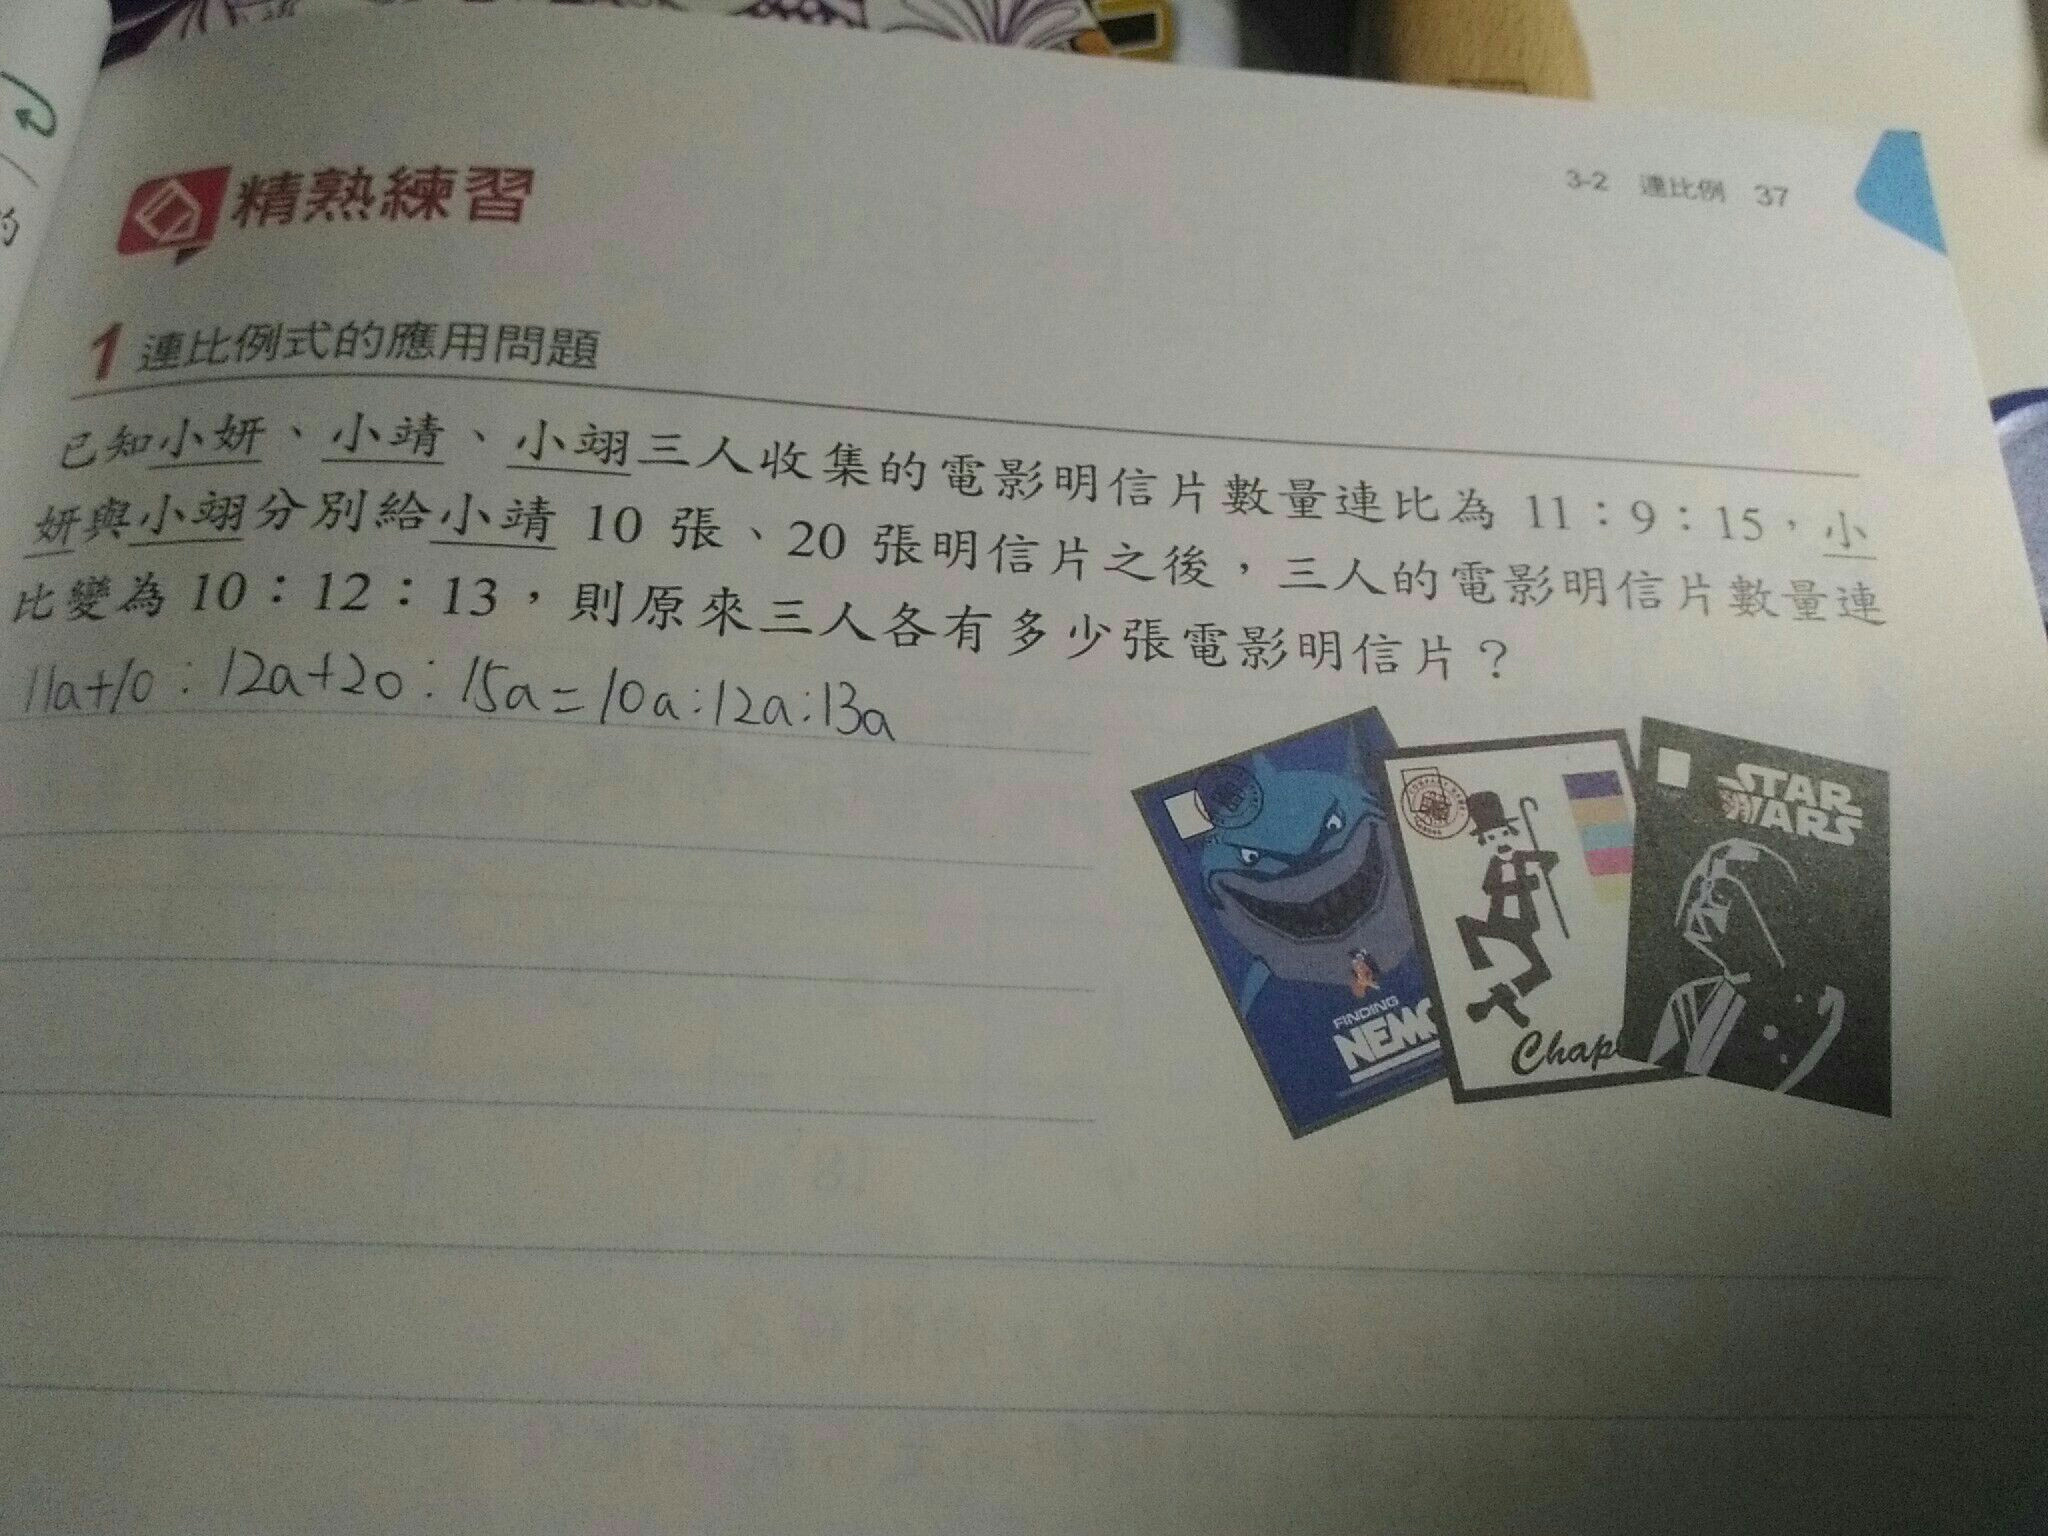 的
3-2 連比例 37
精熟練習
1 連比例式的應用問題
已知小妍、小靖、小翊三人收集的電影明信片數量連比為 11：9：15，小
妍與小翊分別給小靖 10 張、20 張明信片之後，三人的電影明信片數量連
比變為 10：12：13，則原來三人各有多少張電影明信片？
11a+10 : 12a+20 : 15a = 10a : 12a : 13a
FINDING
NEMO
Chap
STAR
WARS